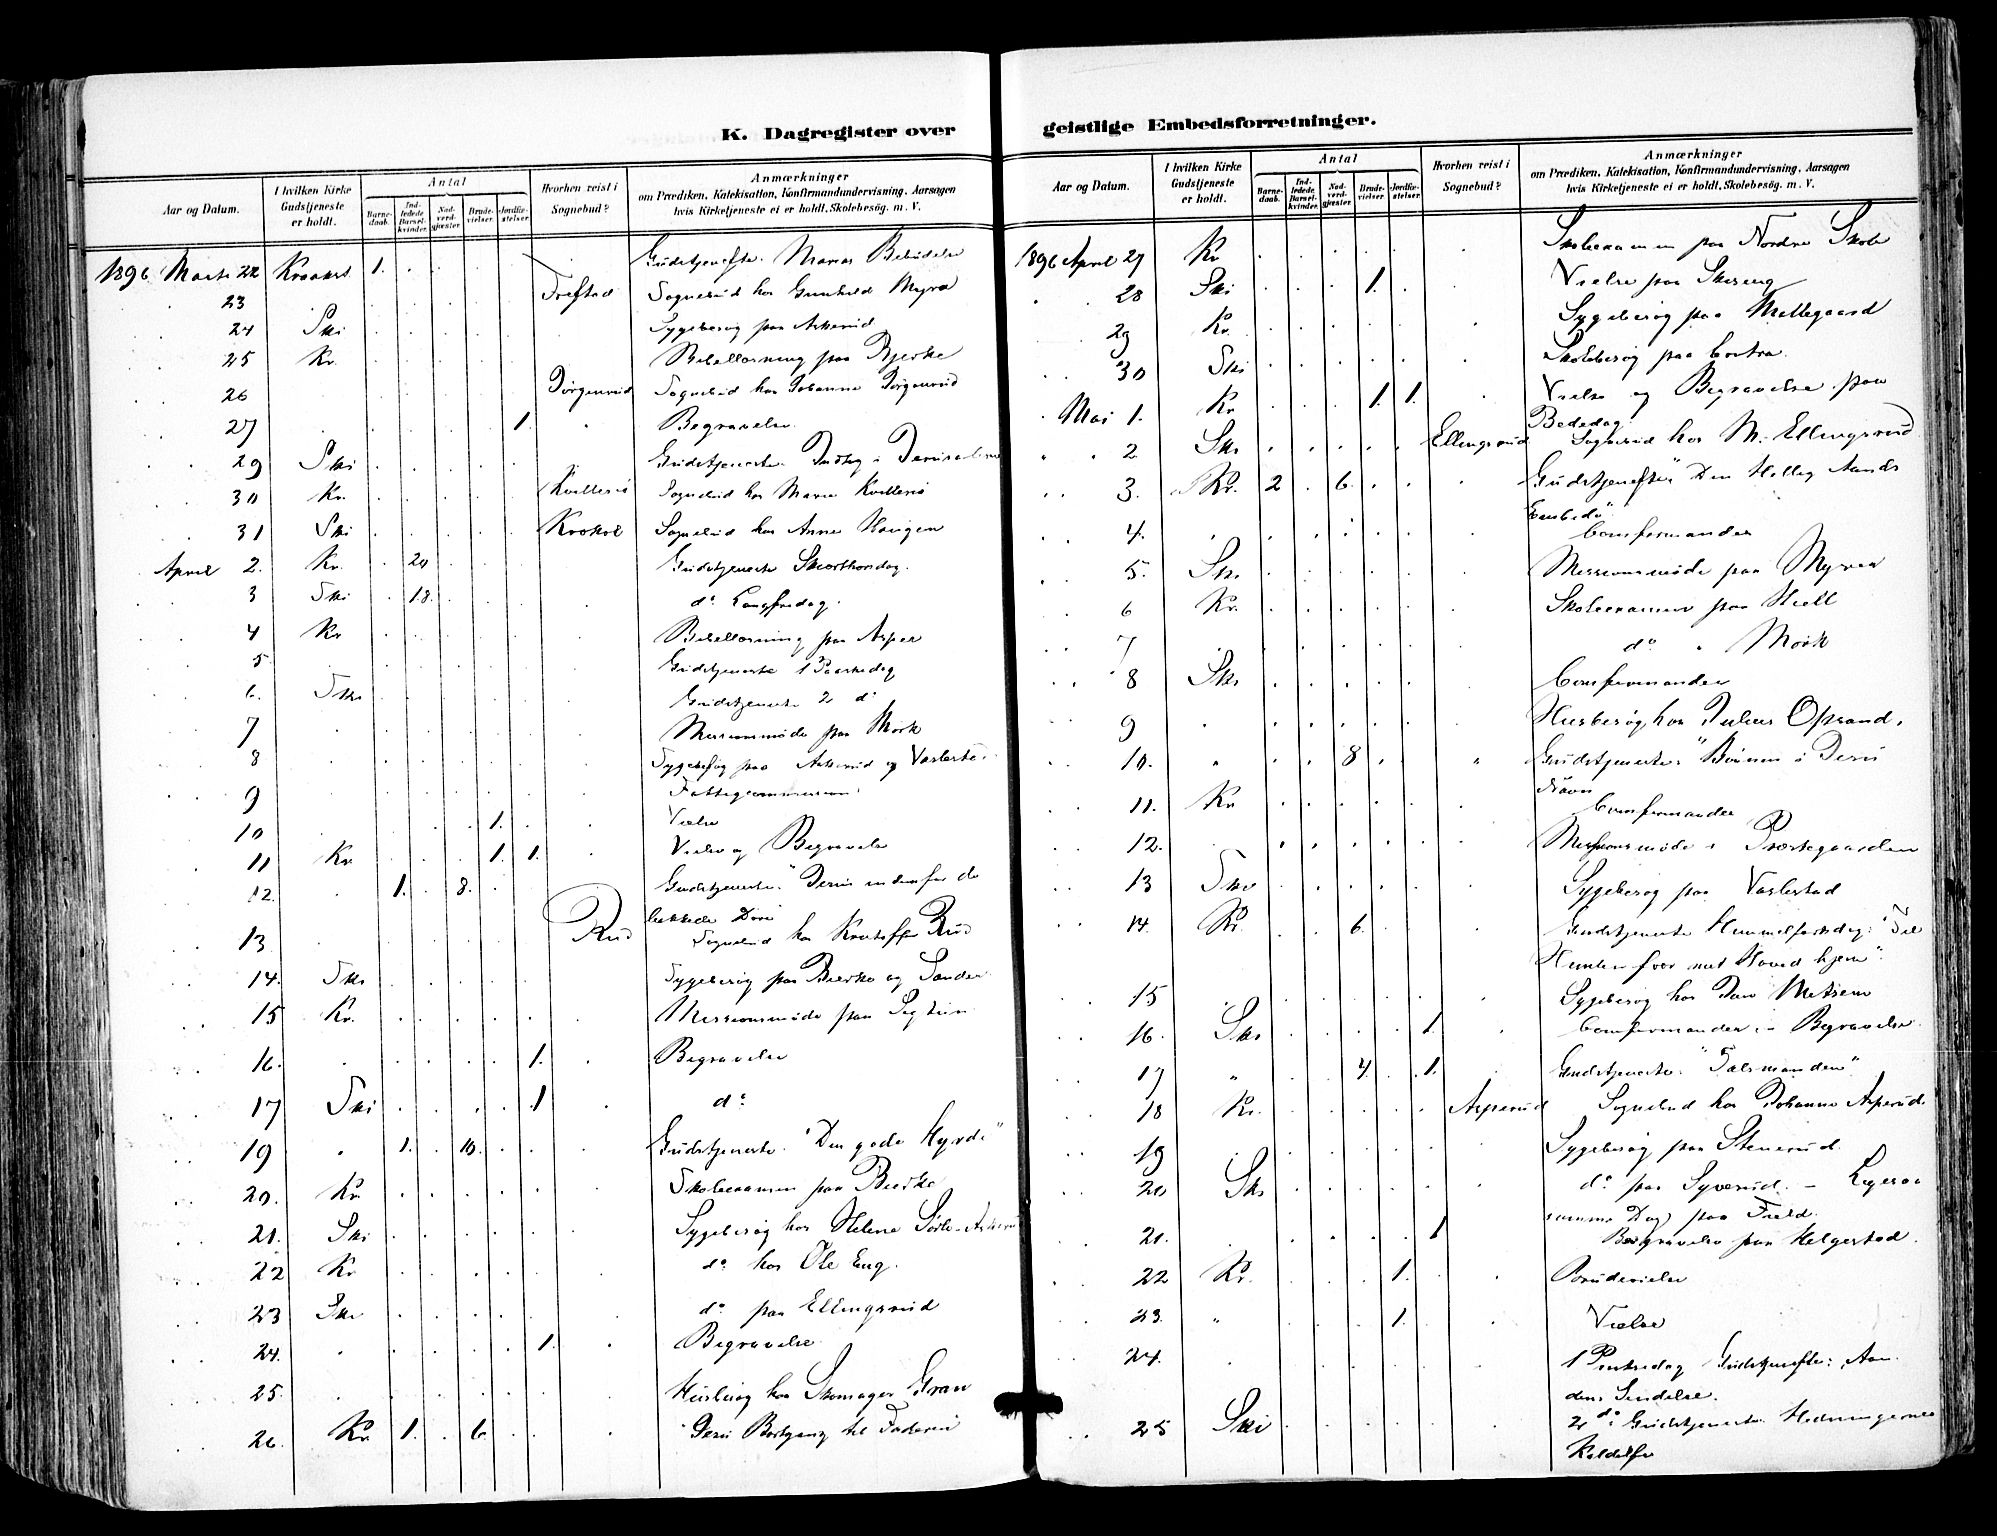 K. Dagregister over
Aar og Datum. I hvilken Kirke Gudstjeneste er holdt. Antal Barnedaab. Indledede Barselkvinder. Nadverdgjæster. Brudevielser. Jordfæstelser. Hvorhen reist i Sognebud? Anmærkninger om Prædiken, Katekisation, Konfirmandundervisning, Aarsagen hvis Kirketjeneste ei er holdt, Skolebesøg. m. V.
1896 Marts 22 Kraakst 1. Gudstjeneste. Marias Bebudelse
23 Trefstad Sognebud hos Gunhild Myra
24 Ski Sygebesøg paa Askerud
25 Kr. Bibellæsning paa Bjerke
26 Jørgenrud Sognebud hos Johanne Jørgenrud
27 1. Begravelse
29 Ski Gudstjeneste. Indtog i Jerusalem
30 Kr. Kvillesiø Sognebud hos Maren Kvillesiø
31 Ski Krokol Sognebud hos Anne Haugen
April 2. Kr. 20 Gudstjeneste Skjærthorsdag.
3 Ski 18. do Langfredag.
4 Kr Bibellæsning paa Asper
5 Gudstjeneste 1 Paaskedag
6. Ski Gudstjeneste 2 do
7 Missionsmøde paa Mørk
8 Sygebesøg paa Askerud og Vaslestad
9 Fattigcommission.
10 1. Vielse
11 Kr. 1. 1. Vielse og Begravelse
12. 1. 8. Gudstjeneste. "Jesus indenfor de
lukkede Døre"
13 Rud Sognebud hos Kristoffer Rud
14. Ski Sygebesøg paa Bierke og Sander
15 Kr. Missionsmøde paa
16. 1. Begravelse
17 Ski 1 do
19 " 1. 10. Gudstjeneste. "Den gode Hyrde"
20. Kr. Skoleexamen paa Bierke
21. Ski Sygebesøg hos Helene
22 Kr do hos Ole Eng.
23 Ski do paa Ellingsrud
24. 1. Begravelse
25. Husbesøg hos Skomager Gran
26. Kr 1. 6. "Jesu Bortgang til Faderen"
geistlige Embedsforretninger.
Aar og Datum. I hvilken Kirke Gudstjeneste er holdt. Antal Barnedaab. Indledede Barselkvinder. Nadverdgjæster. Brudevielser. Jordfæstelser. Hvorhen reist i Sognebud? Anmærkninger om Prædiken, Katekisation, Konfirmandundervisning, Aarsagen hvis Kirketjeneste ei er holdt, Skolebesøg. m. V.
1896 April 27 Kr Skoleexamen paa Nordre Skole
28 Ski 1. Vielse paa Skieng
29 Kr. Sygebesøg paa Mellegaard
30 Ski Skolebesøg paa Contra
Mai 1. Kr 1. 1. Vielse og Begravelse paa
Bededag
2 Ski Ellingsrud Sognebud hos M. Ellingsrud
3. Kr. 2 6. Gudstjeneste "Den Hellig Aands
Embede"
4. Confirmander
5. Ski Missionsmøde paa Myrer
6 Kr. Skoleexamen paa Hiell
7 do " Mørk
8 Ski Confirmander
9 Husbesøg hos Julius Opsand.
10. " 8 " Gudstjeneste "Bønnen i Jesu
Navn
11. Kr Confirmander
12. Missionsmøde i Præstegaarden
13 Ski Sygebesøg paa Vaslestad
14. Kr. 6. Gudstjeneste Himmelfartsdag: "Til
Himlen foer mit Hoved hjem".
15 Sygebesøg hos Jan
16. Ski 1. Confirmander - Begravelse.
17 " 4. 1. Gudstjeneste. "Talsmanden".
18 Kr. Asperud Sognebud hos Johanne Asperud
19 Sygebesøg paa Stenerud.
20 Ski do paa Syverud. -
samme Dag paa Field.
21. 1 Begravelse paa Helgestad.
22 Kr. 1. Brudevielse
23. " 1. Vielse
24. 1 Pintsedag Gudstjeneste: Aan-
dens Sendelse.
25 Ski 2 do Gudstjeneste Hedningernes
Kaldelse